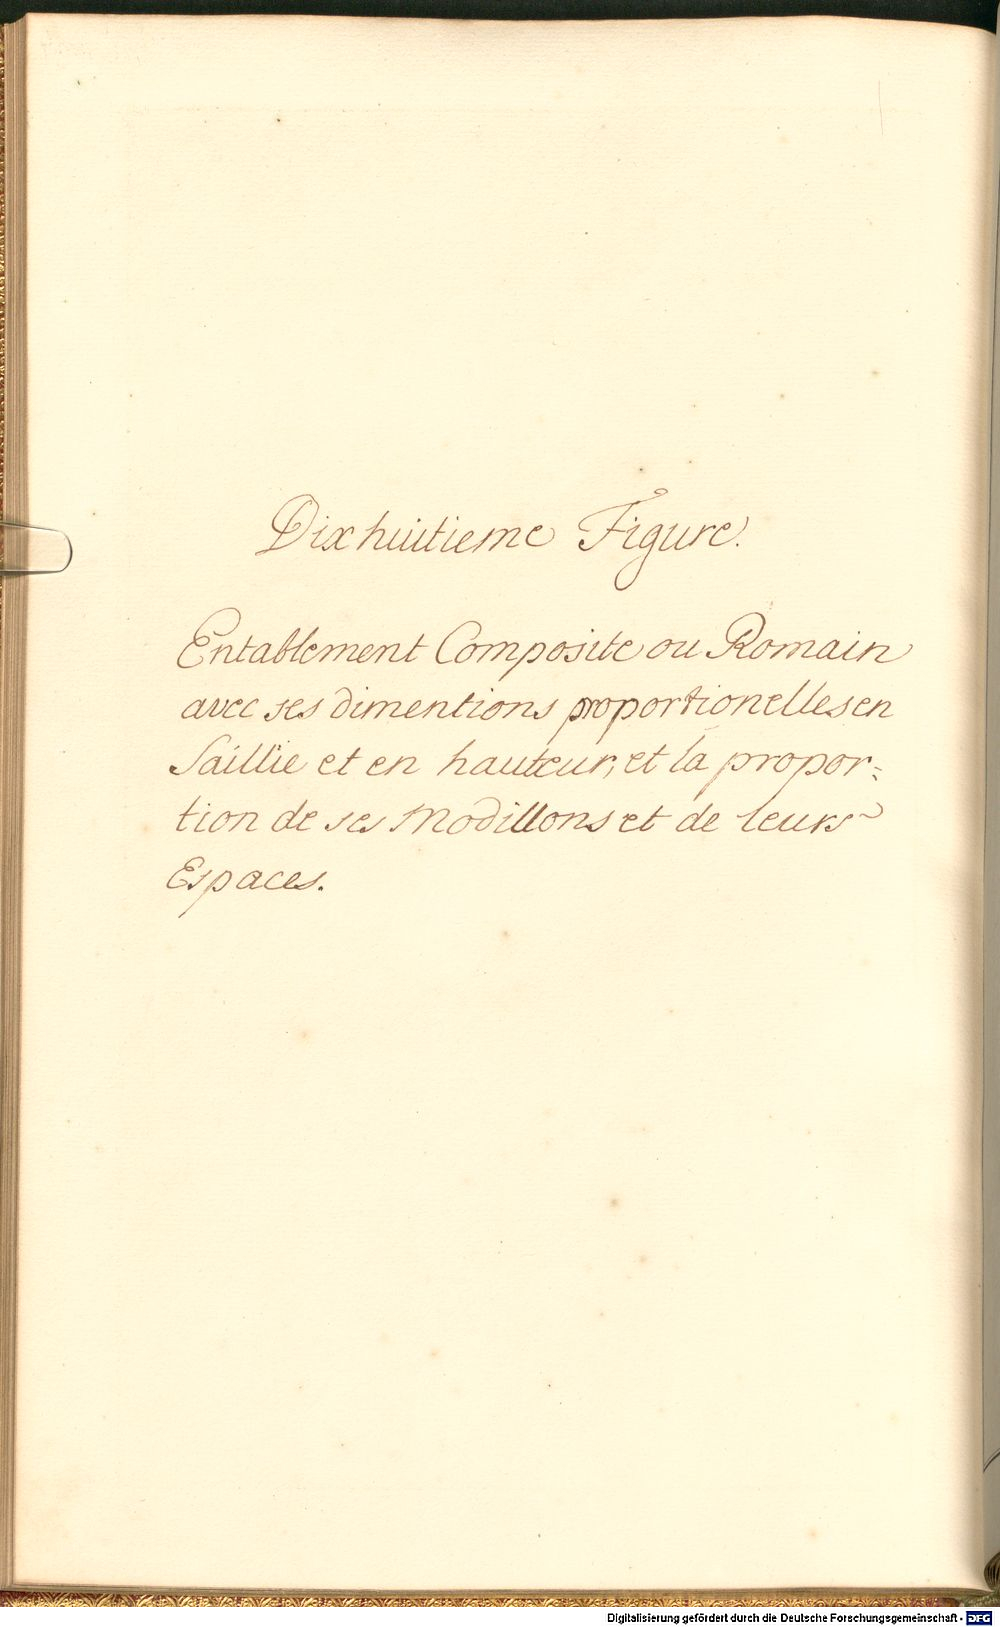 Dixhuitieme Figure.
Entablement Composite ou Romain
avec ses dimentions proportionelles en
Saillie et en hauteur, et la propor=
tion de ses Modillons et de leurs
Espaces.
Digitalisierung gefördert durch die Deutsche Forschungsgemeinschaft - DFG